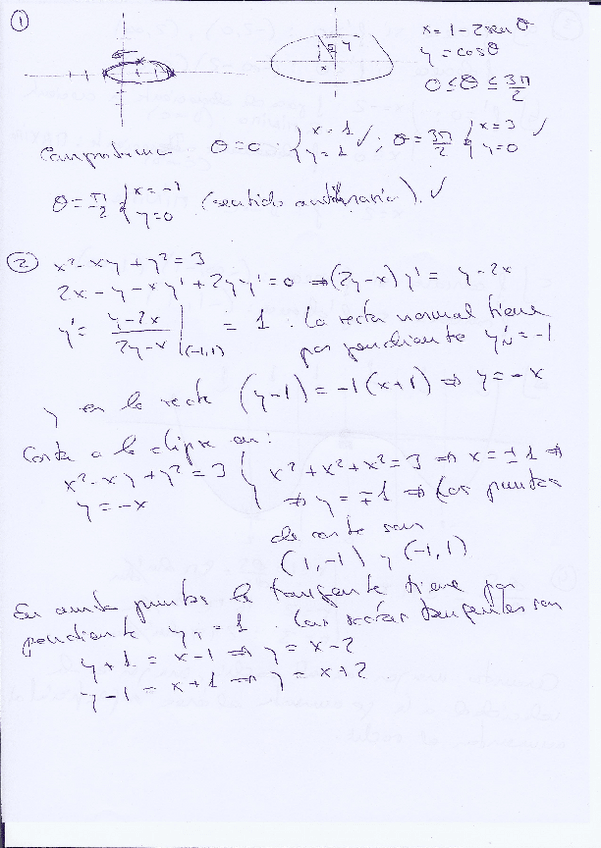 ①
x = 1 - 2 sen θ
y = cos θ
0 ≤ θ ≤ 3π/2
θ = 0 { x = 1 y = 1 ✓ ; θ = 3π/2 { x = 3 y = 0 ✓
θ = π/2 { x = -1 y = 0 (sentido antihorario). ✓
② x² - xy + y² = 3
2x - y - xy' + 2yy' = 0 ⇒ (2y - x) y' = y - 2x
y' = (y - 2x)/(2y - x) |(-1,1) = 1 : la recta normal tiene
por pendiente y'N = -1
y es la recta (y - 1) = -1 (x + 1) ⇒ y = -x
Corta a la elipse en:
x² - xy + y² = 3 { x² + x² + x² = 3 ⇒ x = ±1 ⇒
y = -x ⇒ y = ∓1 ⇒ Los puntos
de corte son
(1, -1) y (-1, 1)
En ambos puntos la tangente tiene por
pendiente y'T = 1. Las rectas tangentes son
y + 1 = x - 1 ⇒ y = x - 2
y - 1 = x + 1 ⇒ y = x + 2